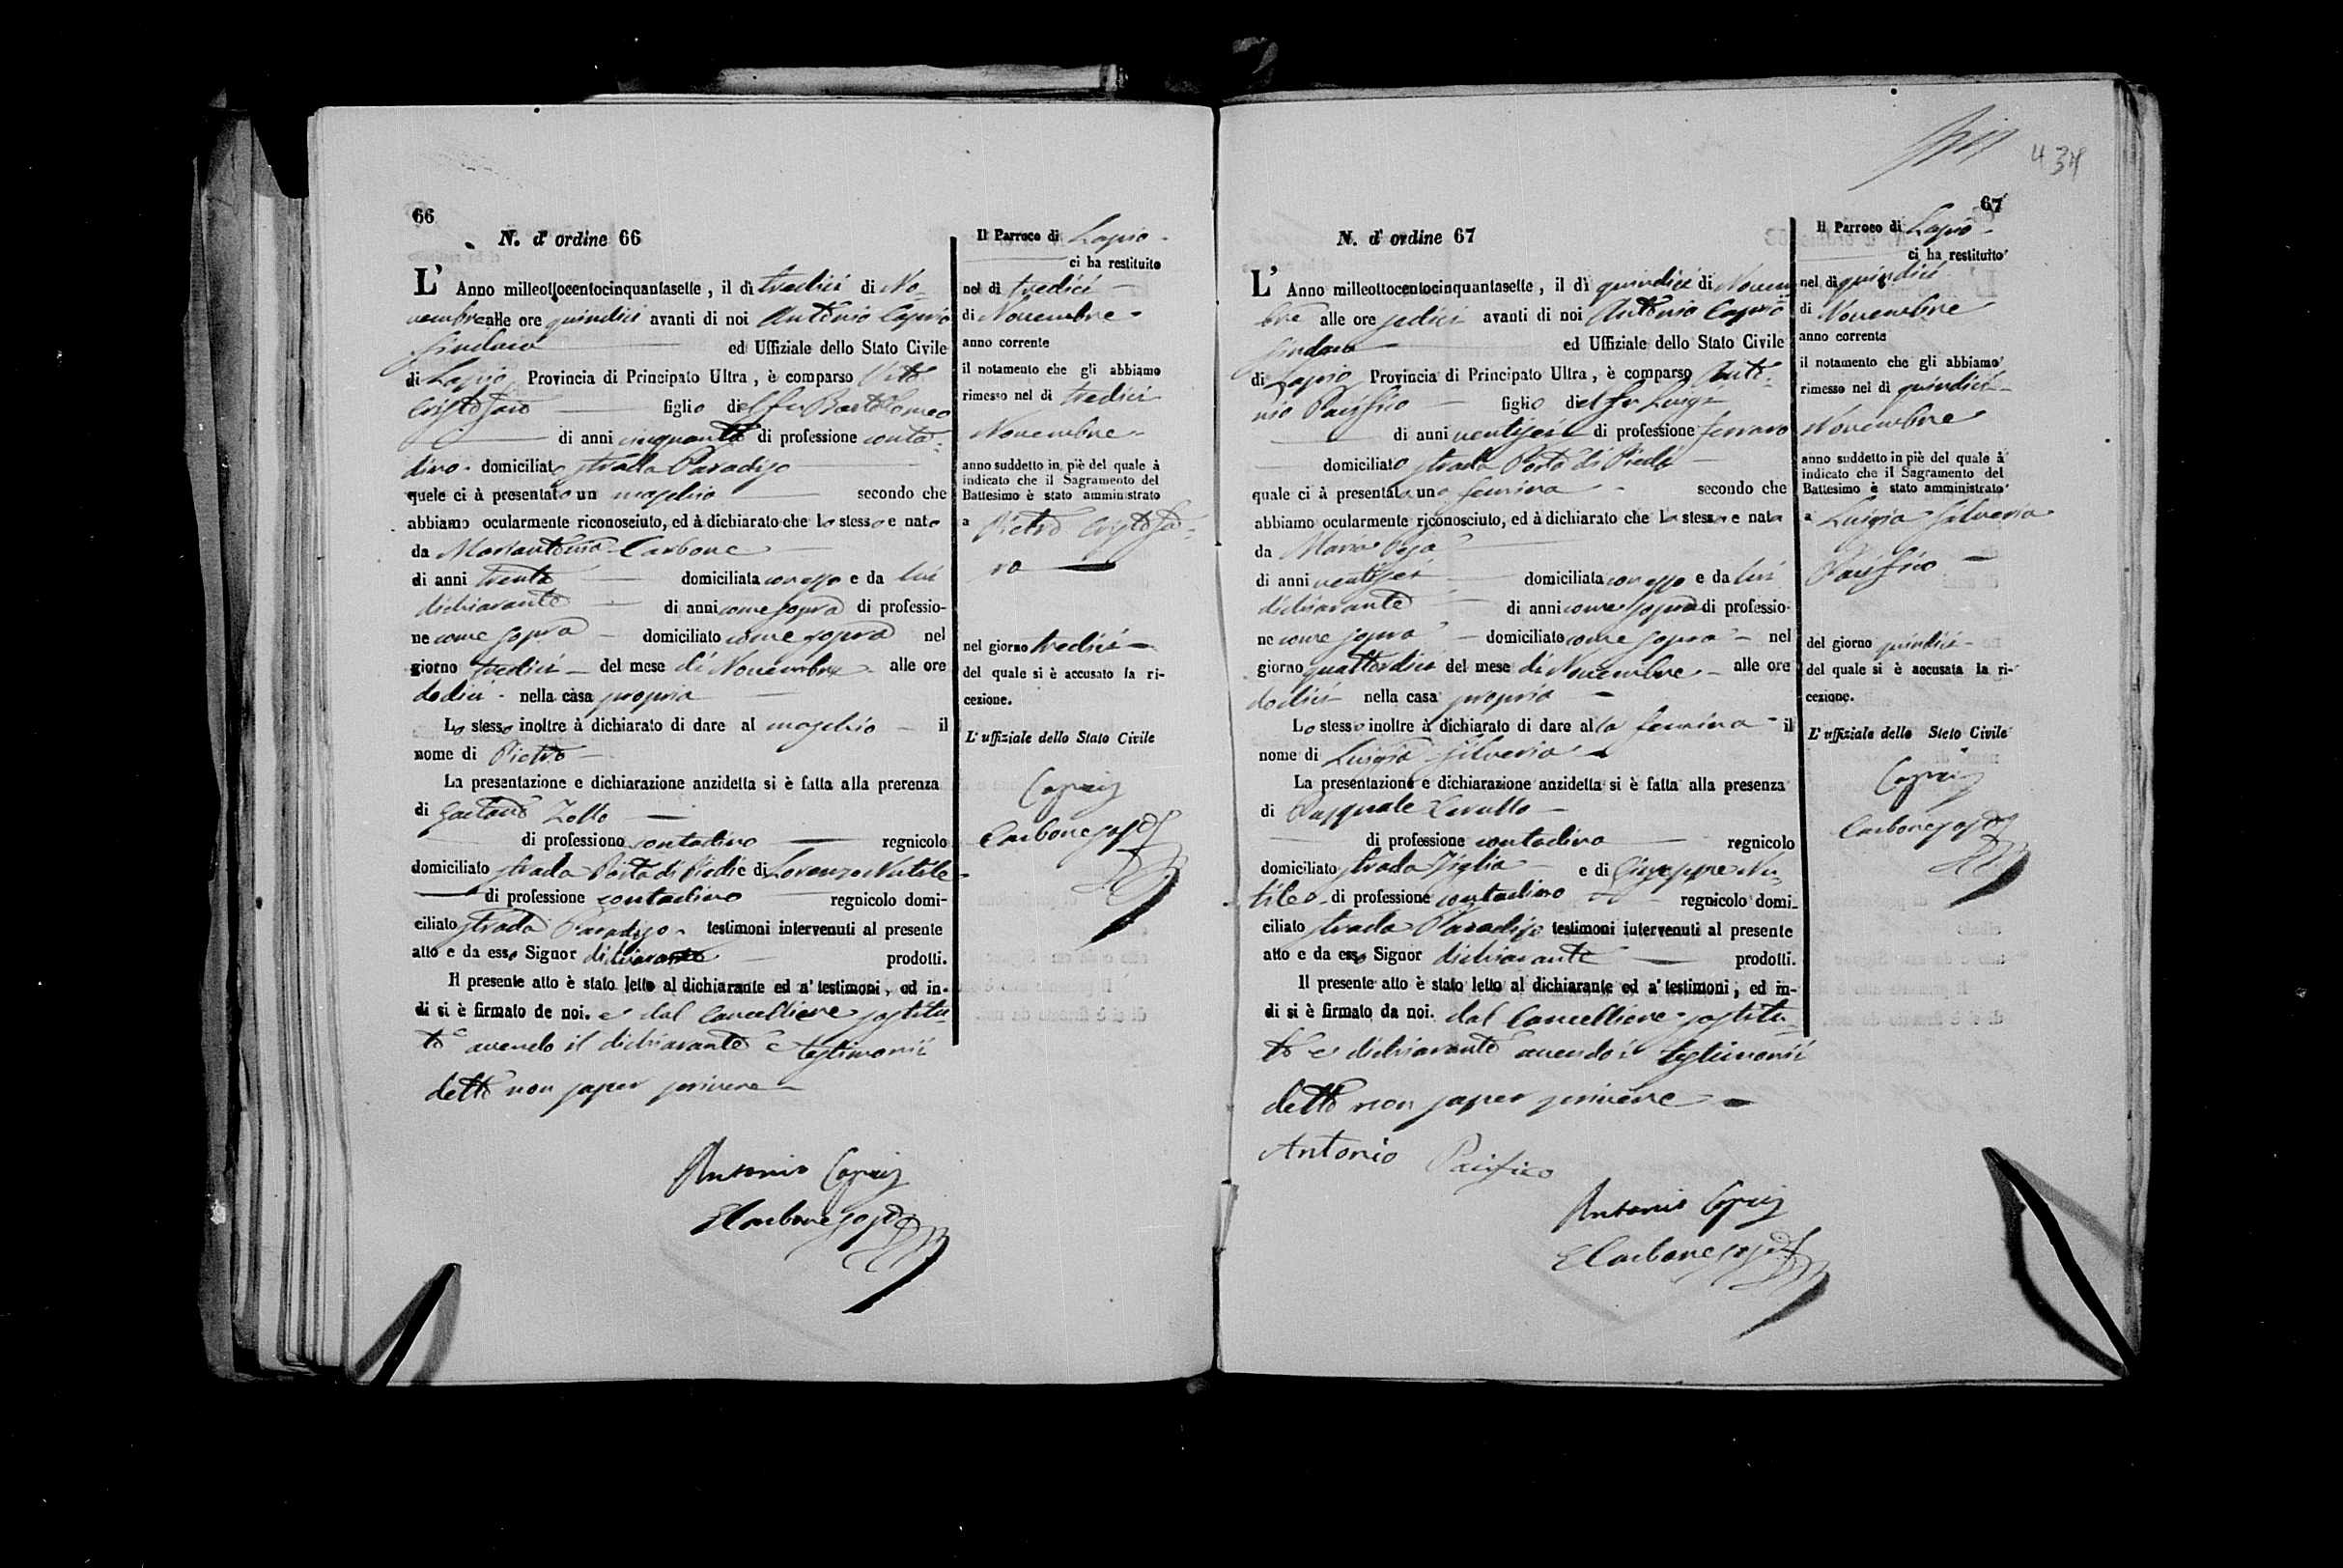 66
N. d' ordine 66
L' Anno milleottocentocinquantasette, il dì tredici di No-
vembre alle ore quindici avanti di noi Antonio Caprio
Sindaco ed Uffiziale dello Stato Civile
di Lapio Provincia di Principato Ultra, è comparso Vito
Cristofaro figlio del fu Bartolomeo
di anni cinquanta di professione conta-
dino domiciliato strada Paradiso
quele ci à presentato un maschio secondo che
abbiamo ocularmente riconosciuto, ed à dichiarato che lo stesso e nato
da Mariantonia Carbone
di anni trenta domiciliata con esso e da lui
dichiarante di anni come sopra di professio-
ne come sopra domiciliato come sopra nel
giorno tredici del mese di Novembre alle ore
dodici nella casa propria
Lo stesso inoltre à dichiarato di dare al maschio il
nome di Pietro
La presentazione e dichiarazione anzidetta si è fatta alla prerenza
di Gaetano Zollo
di professiono contadino regnicolo
domiciliato strada Porta di Piedi e di Lorenzo Nutile
di professione contadino regnicolo domi-
ciliato strada Paradiso testimoni intervenuti al presente
atto e da esso Signor dichiarante prodotti.
Il presente atto è stato letto al dichiarante ed a' testimoni, ed in-
di si è firmato de noi. e dal Cancelliere sostitu-
to avendo il dichiarante e testimonii
detto non saper scrivere
Antonio Caprio
E Carbone sosto
Il Parroco di Lapio
ci ha restituito
nel di tredici
di Novembre
anno corrente
il notamento che gli abbiamo
rimesso nel di tredici
Novembre
anno suddetto in piè del quale à
indicato che il Sagramento del
Battesimo è stato amministrato
a Pietro Cristofa-
ro
nel giorno tredici
del quale si è accusato la ri-
cezione.
L' uffiziale dello Stato Civile
Caprio
Carbone sosto
438
67
N. d' ordine 67
L' Anno milleottocentocinquantasette, il dì quindici di Novem
bre alle ore sedici avanti di noi Antonio Caprio
Sindaco ed Uffiziale dello Stato Civile
di Lapio Provincia di Principato Ultra, è comparso Anto-
nio Pacifico figlio del fu Luigi
di anni ventisei di professione ferraro
domiciliato strada Porta di Piedi
quale ci à presentata una femina secondo che
abbiamo ocularmente riconosciuto, ed à dichiarato che la stessa e nata
da Maria
di anni ventisei domiciliata con esso e da lui
dichiarante di anni come sopra di professio-
ne come sopra domiciliato come sopra nel
giorno quattordici del mese di Novembre alle ore
dodici nella casa propria
Lo stesso inoltre à dichiarato di dare alla femina il
nome di Luigia Silveria
La presentazione e dichiarazione anzidetta si è fatta alla presenza
di Pasquale
di professione contadino regnicolo
domiciliato strada e di Giuseppe Nu-
tile di professione contadino regnicolo domi-
ciliato strada Paradiso testimoni intervenuti al presente
atto e da esso Signor dichiarante prodotti.
Il presente atto è stato letto al dichiarante ed a' testimoni, ed in-
di si è firmato da noi. dal Cancelliere sostitu-
to e dichiarante avendo i testimonii
detto non saper scrivere
Antonio Pacifico
Antonio Caprio
E Carbone sosto
Il Parroco di Lapio
ci ha restituito
nel di quindici
di Novembre
anno corrente
il notamento che gli abbiamo
rimesso nel di quindici
Novembre
anno suddetto in piè del quale à
indicato che il Sagramento del
Battesimo è stato amministrato
a Luigia Silveria
Pacifico
del giorno quindici
del quale si è accusata la ri-
cezione.
L' uffiziale dello Stato Civile
Caprio
Carbone sosto